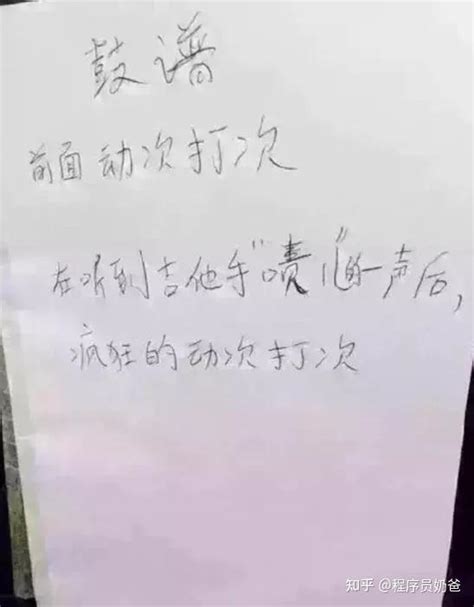 鼓谱
前面动次打次
在听到吉他手"啧！"的一声后，
疯狂的动次打次
知乎 @程序员奶爸